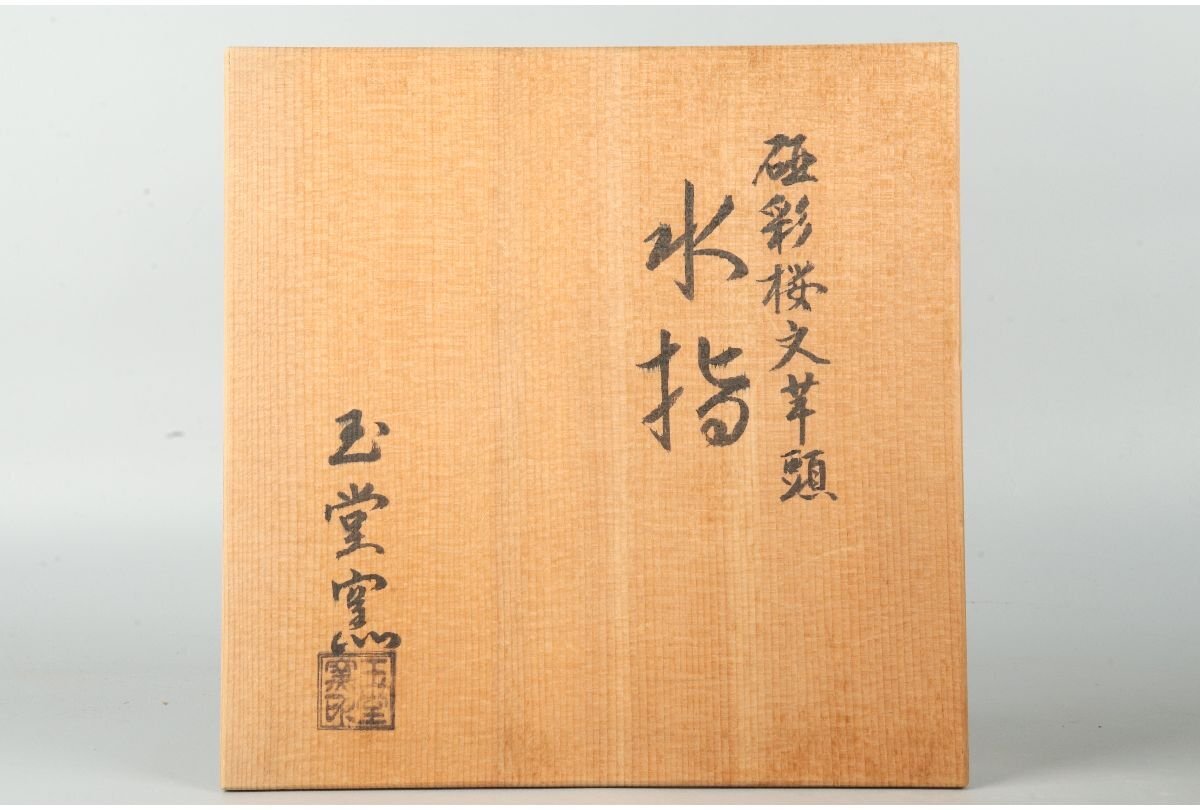 碰彩桜文芋頭
水指
玉堂窯
玉堂
窯印